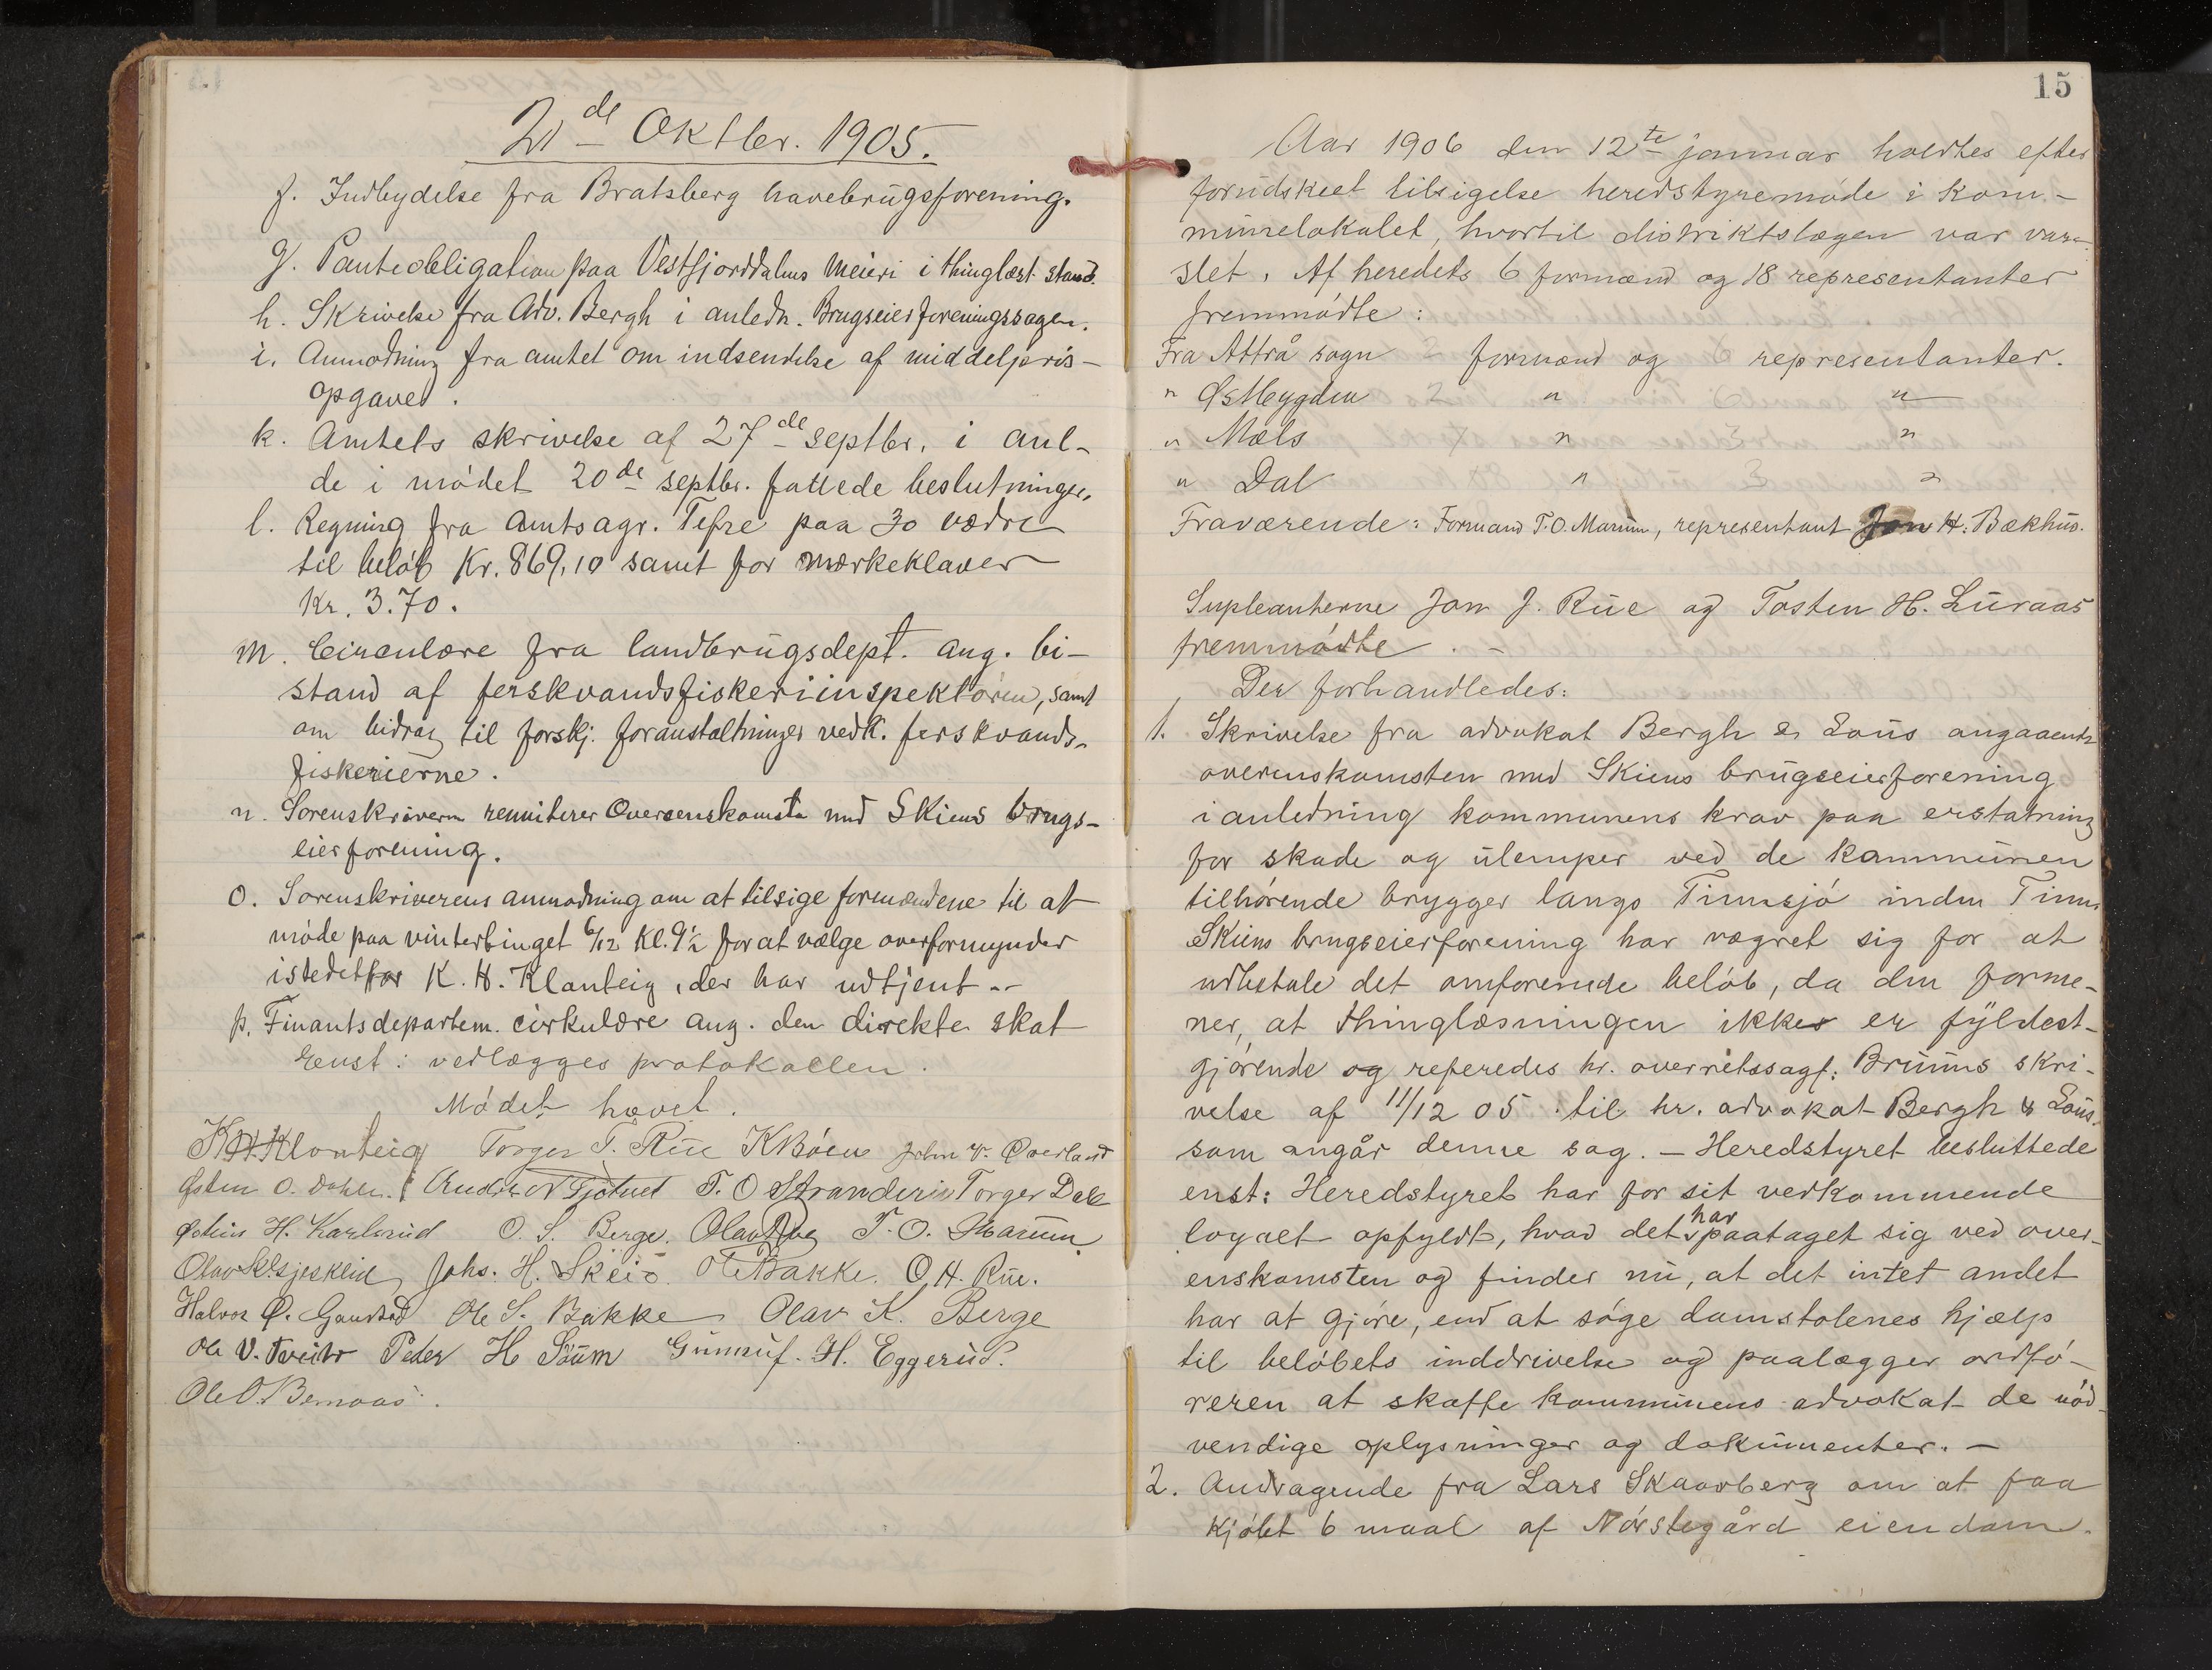 21de Oktbr. 1905.
f. Indbydelse fra Bratsberg havebrugsforening.
g. Panteobligation paa Vestfjorddalens Meieri i thinglæst stand.
h. Skrivelse fra Adv. Bergh i anledn. Brugseierforeningssagen.
i. Anmodning fra amtet om indsendelse af middelpris-
opgaver.
k. Amtets skrivelse af 27de septbr. i anl-
de i mødet 20de septbr. fattede beslutninger.
l. Regning fra Amtsagr. Tefre paa 30 vædre
til beløb Kr. 869,10 samt for mærkeklaver
Kr. 3.70.
m. Circulære fra landbrugsdept. ang. bi-
stand af ferskvandsfiskeriinspektøren, samt
om bidrag til forskj. foranstaltninger vedk. ferskvands-
fiskerierne.
n. Sorenskriveren remitterer Overenskomst med Skiens brugs-
eierforening.
o. Sorenskriverens anmodning om at tilsige formændene til at
møde paa vinterthinget 6/12 Kl. 9½ for at vælge overformynder
istedetfor K. H. Klonteig, der har udtjent.-
p. Finantsdepartem. cirkulære ang. den direkte skat
Enst: vedlægges protokollen.
Mødet hævet.
K H Klonteig Torger T. Rue K Bøen John V. Øverland
Østen O. Dahle. T. O Stranderin Torger Dale
Østein H. Karlsrud O. S. Berge. Olav T. O. Marum
Olav Johs. H. Skeie Ole Bakke. O. H. Rue.
Halvor Ø. Gaustad Ole S. Bakke Olav K. Berge
Ole V. Tveito Peder H Søum Gunnuf. H. Eggerud.
Ole O. Bernaas.
15
Aar 1906 den 12te januar holdtes efter
forudskeet tilsigelse heredstyremøde i kom-
munelokalet, hvortil distriktslægen var var-
slet. Af heredets 6 formænd og 18 representanter
fremmødte:
Fra Attrå sogn 2 formænd og 6 representanter.
" Østbygden 2 " 6 "
" Mæls 1 " 3 "
" Dal " 3 "
Fraværende: Formand T. O. Marum, representant Jon H. Bækhus.
Supleanterne Jon J. Rue og Tosten H. Luraas
fremmødte. -
Der forhandledes:
1. Skrivelse fra advokat Bergh & Lous angaaende
overenskomsten med Skiens brugseierforening
i anledning kommunens krav paa erstatning
for skade og ulemper ved de kommunen
tilhørende brygger langs Tinnsjø inden Tinn.
Skiens brugseierforening har vægret sig for at
udbetale det omforenede beløb, da den forme-
ner, at thinglæsningen ikke er fyldest-
gjørende og referedes hr. overretssagf: Bruuns skri-
velse af 11/12 05 til hr. advokat Bergh & Lous,
som angår denne sag. - Heredstyret besluttede
enst: Heredstyret har for sit vedkommende
loyalt opfyldt, hvad det har paataget sig ved over-
enskomsten og finder nu, at det intet andet
har at gjøre, end at søge domstolenes hjælp
til beløbets inddrivelse og paalægger ordfø-
reren at skaffe kommunens advokat de nød-
vendige oplysninger og dokumenter. -
2. Andragende fra Lars Skaarberg om at faa
kjøbt 6 maal af Nørstegård eiendom.